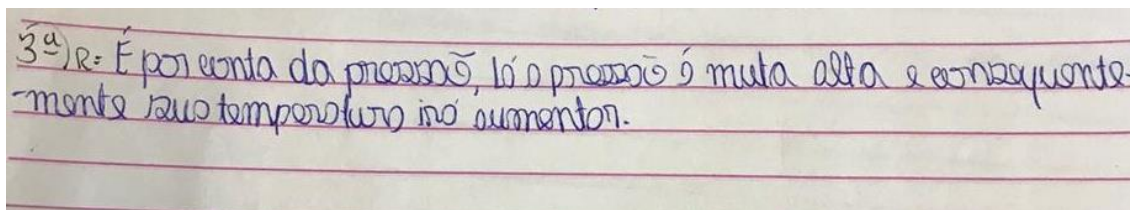 3ª) R= É por conta da pressão, lá a pressão é muta alta e consequente-
-mente sua temperatura irá aumentar.